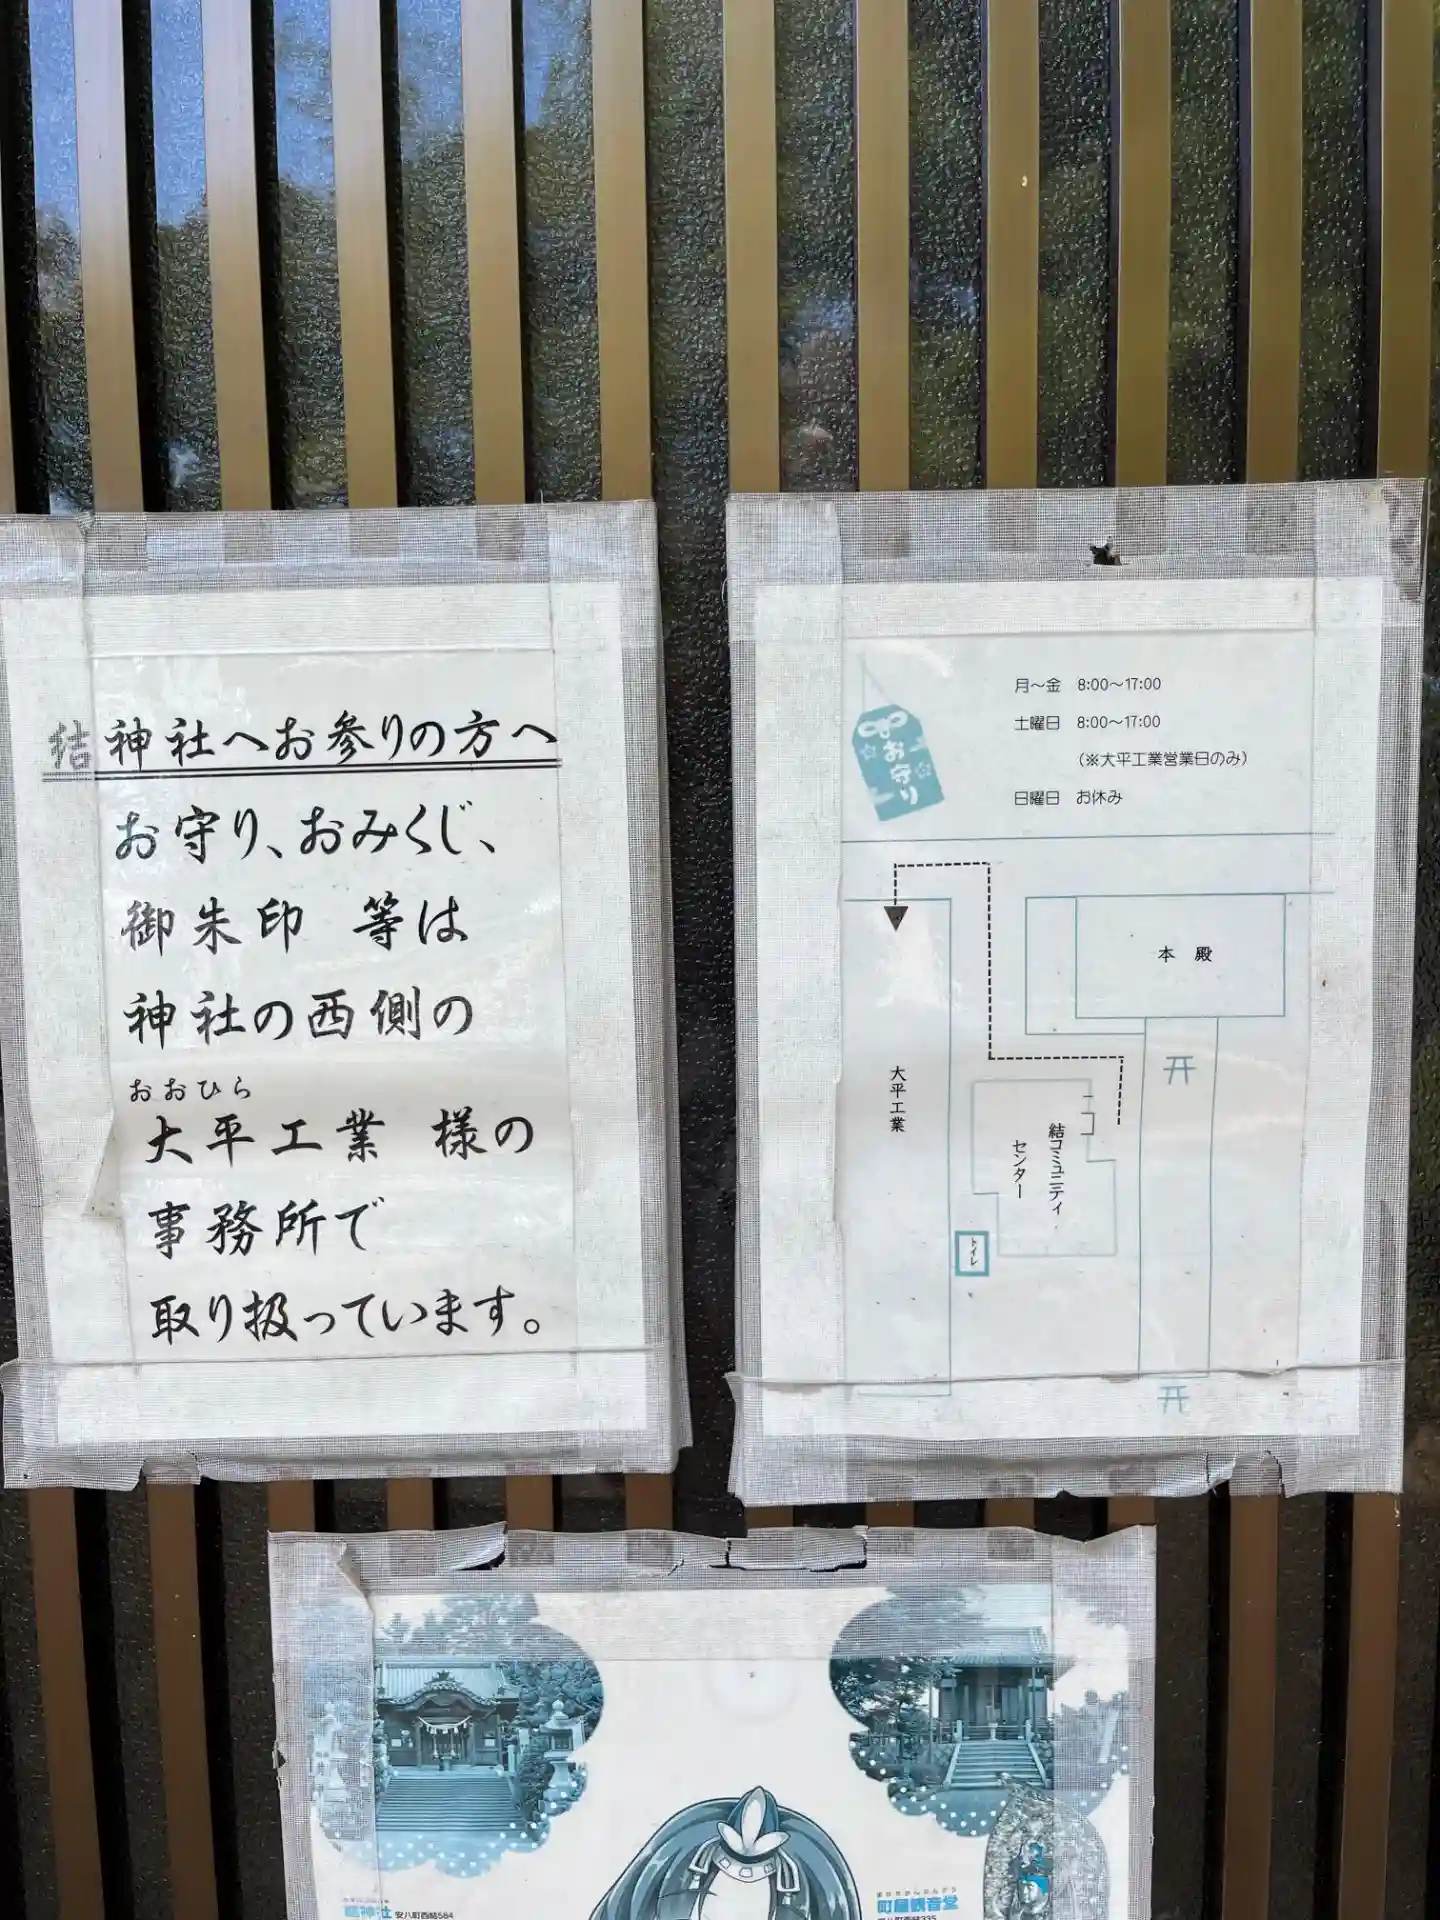 結神社へお参りの方へ
お守り、おみくじ、
御朱印 等は
神社の西側の
おおひら
大平工業 様の
事務所で
取り扱っています。
お守り
月～金 8:00～17:00
土曜日 8:00～17:00
(※大平工業営業日のみ)
日曜日 お休み
本殿
大平工業
結コミュニティ
センター
トイレ
結神社 安八町西結584
町屋観音堂
安八町西結335